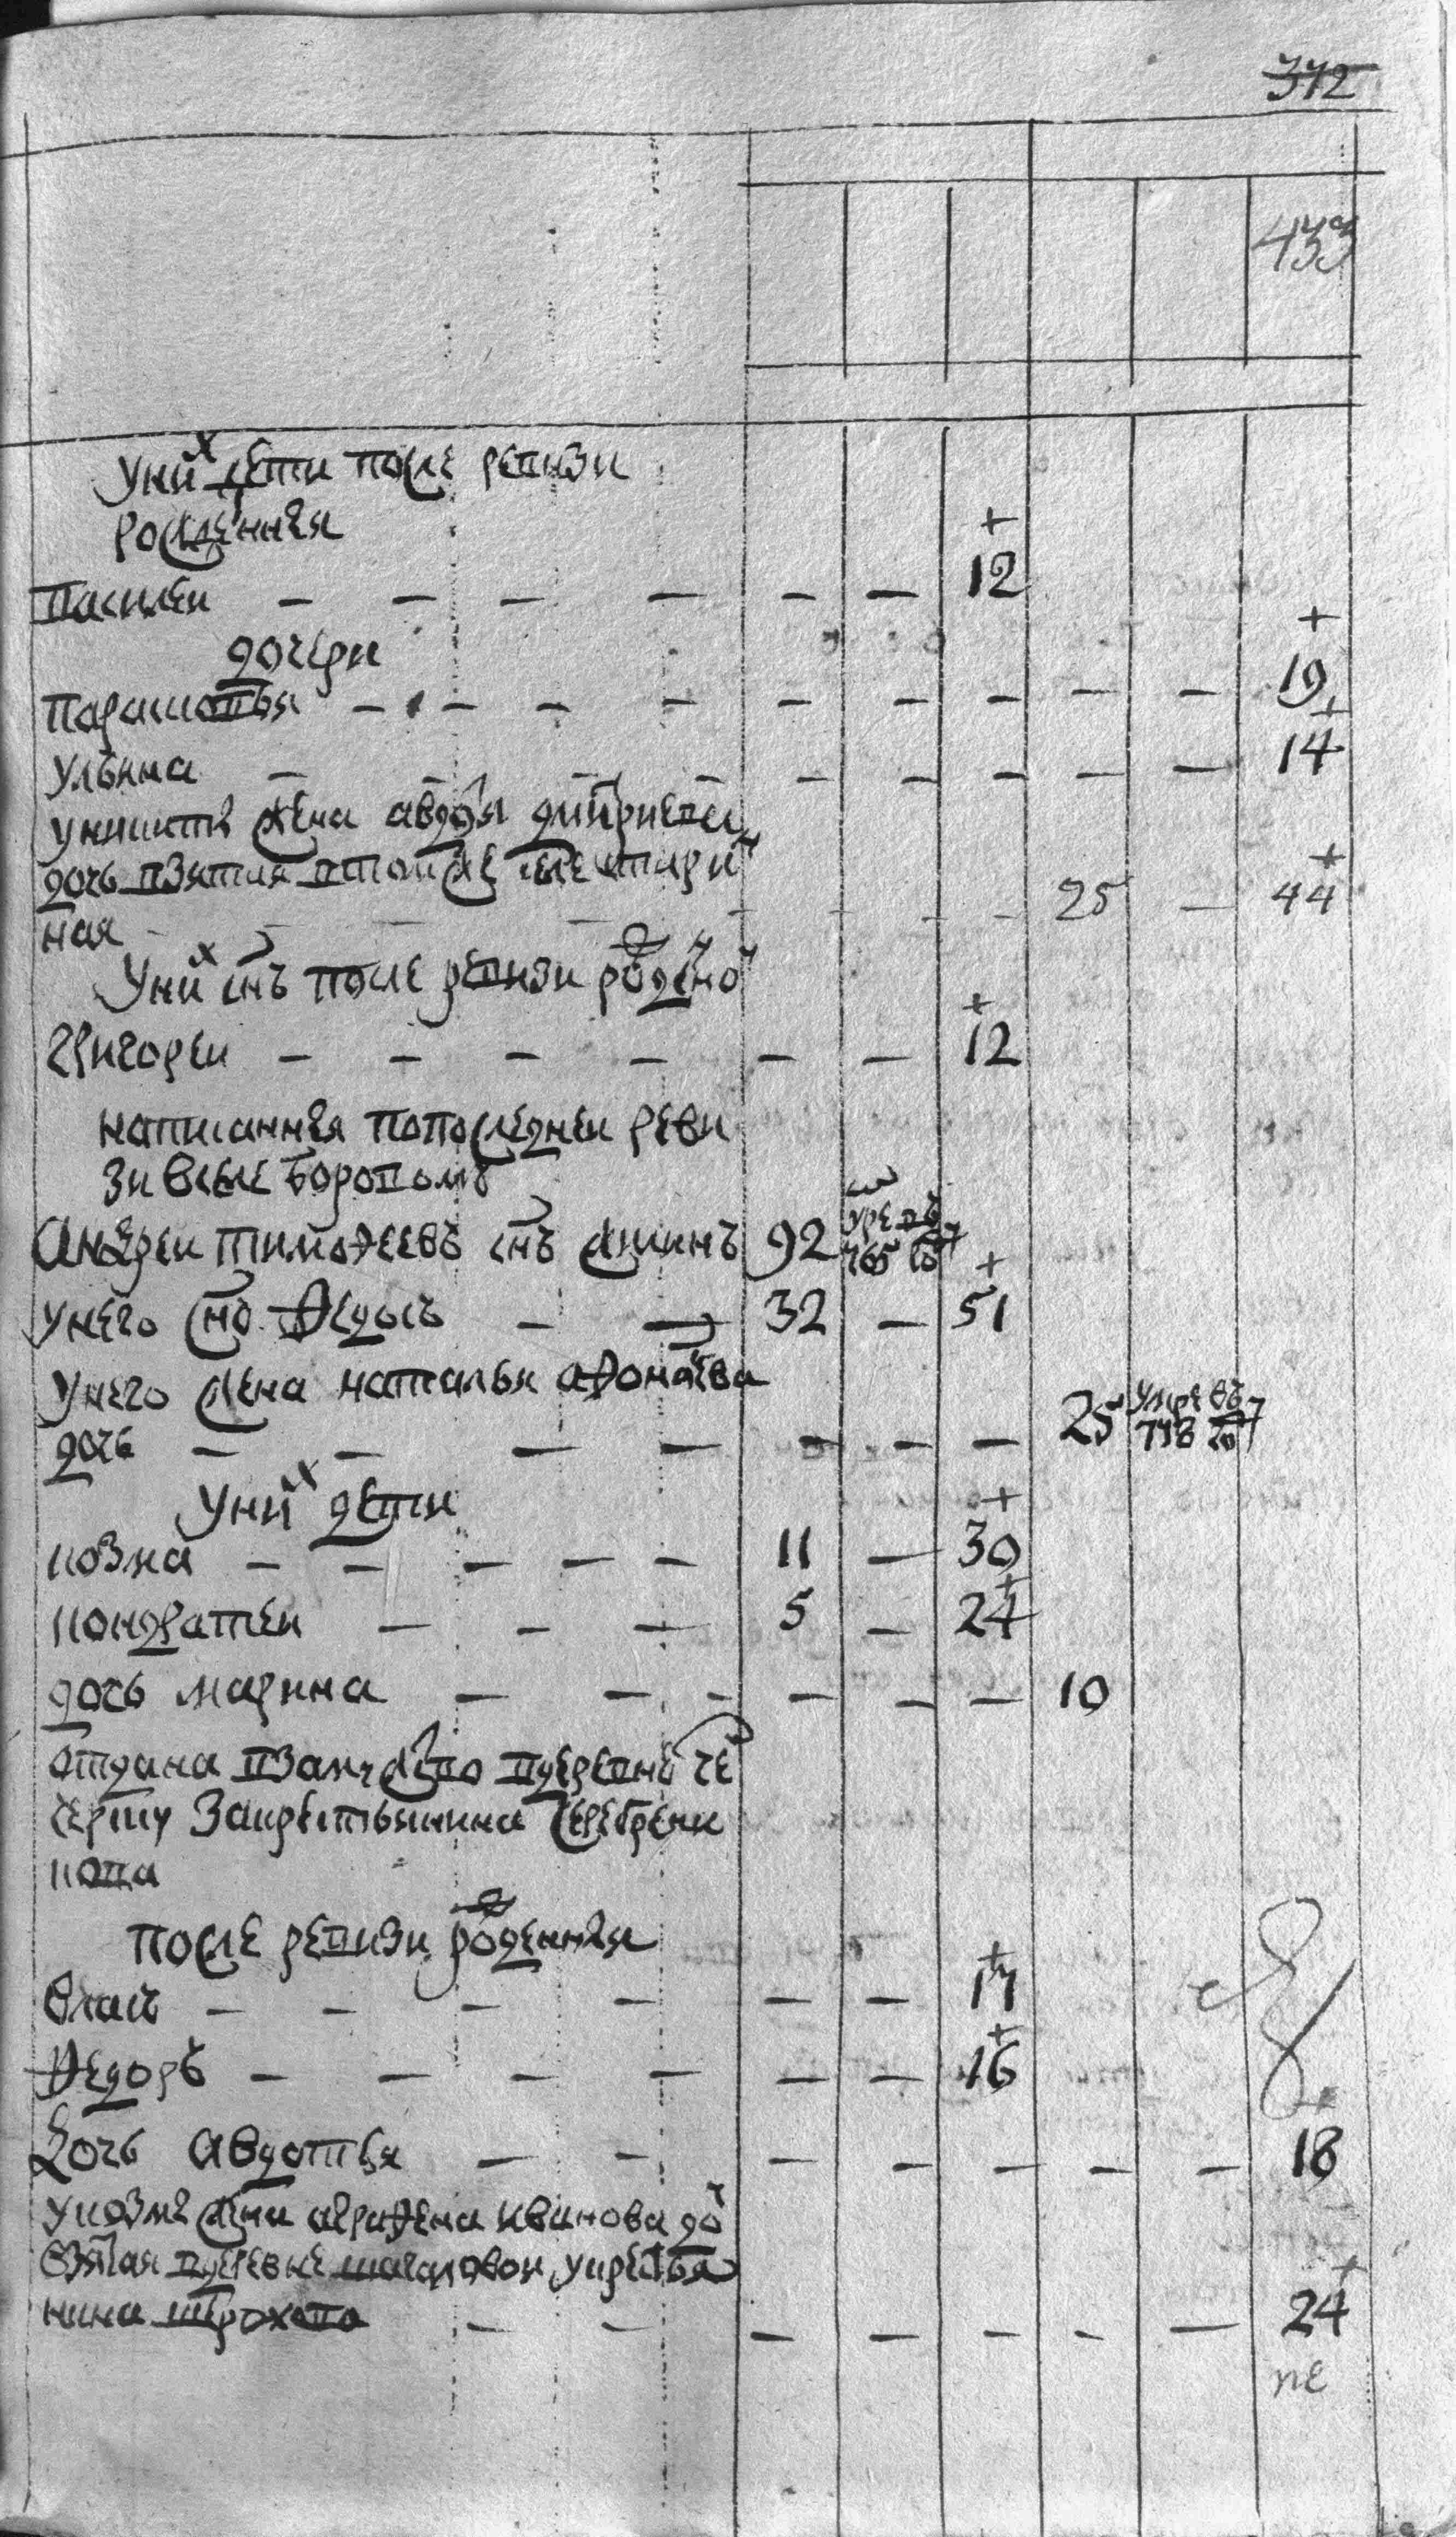 372
433
у них дети после ревизи
рожденныя
+
василеи — — — — — — 12
дочери
+
парасковья — — — — — — — — — 19
+
ульяна — — — — — — — — — 14
жена авдотья дмитриева
дочь взятая втом же селе +
ная — — — — — — 25 — 44
у них снъ после ревизи рожденой
+
григореи — — — — — — 12
написанныя попоследнеи реви
зи вселе боровому
андреи тимофеевъ снъ аникинъ 92 умре въ 765 году
+
унего снъ федосъ — — 32 — 51
унего жена наталья афонасьева
дочь — — — — — — — 25 умре въ 748 году
у них дети
+
козма — — — — — 11 — 30
+
кондратеи — — — 5 — 24
дочь марина — — — — — — 10
отдана взамужество вдеревню
закрестьянина серебрени
кова
после ревизи рожденныя
+
власъ — — — — — — 17
+
федоръ — — — — — — 16
+
дочь авдотья — — — — — — — 18
укозмы жена аграфена иванова дочь
взятая вдеревне шагаловои укрестья
+
нина терохова — — — — — — — 24